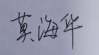 莫海华